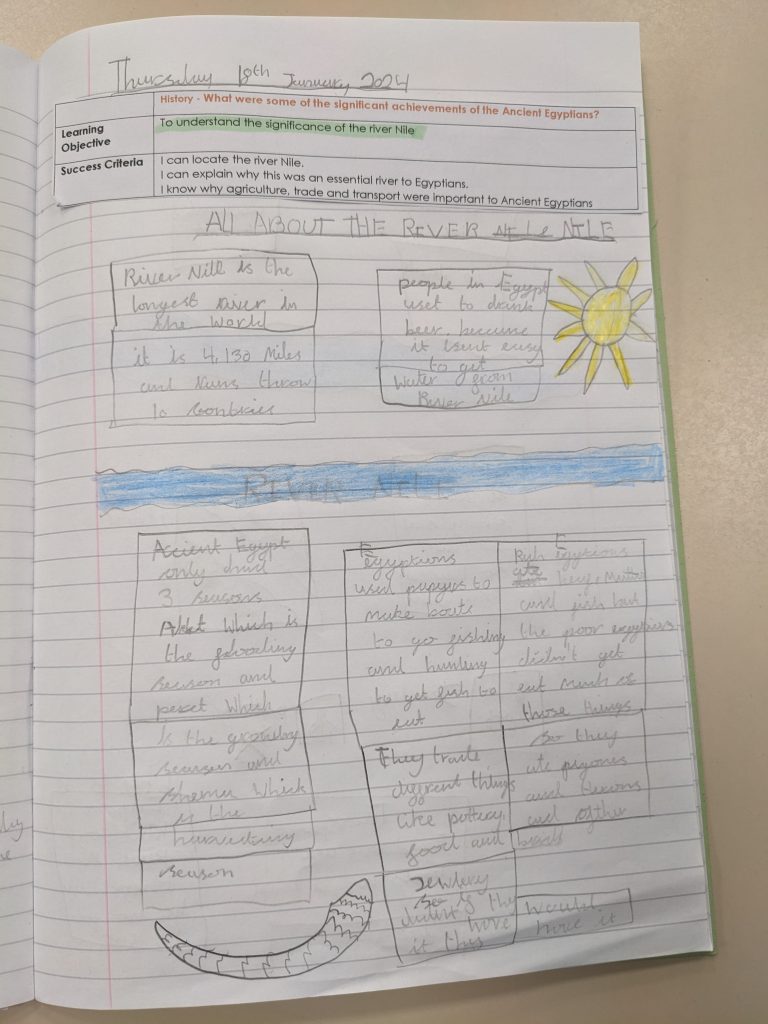 Thursday 18th January 2024
History - What were some of the significant achievements of the Ancient Egyptians?
Learning Objective
To understand the significance of the river Nile
Success Criteria
I can locate the river Nile.
I can explain why this was an essential river to Egyptians.
I know why agriculture, trade and transport were important to Ancient Egyptians
ALL ABOUT THE RIVER NILE NILE
River Nill is the
longest river in
the World
it is 4,130 Miles
and runs throw
10 Contries
people in Egypt
uset to drink
beer. because
it wasnt easy
to get
Water from
River Nile
RIVER NILE
Acient Egypt
only had
3 seasons
Aket Which is
the flooding
season and
peret Which
Is the growing
season and
shemu Which
is the
harvesting
season
Egyptions
used papyrus to
make boats
to go fishing
and hunting
to get fish to
eat
They trade
different things
like pottery
food and
Jewlery
so is they
didnt have
it this
would
have it
Rich Egyptions
ate beef, Mutton
and fish but
the poor egyptions
didn't get
eat much of
those things
so they
ate pigeons
and
and other
birds